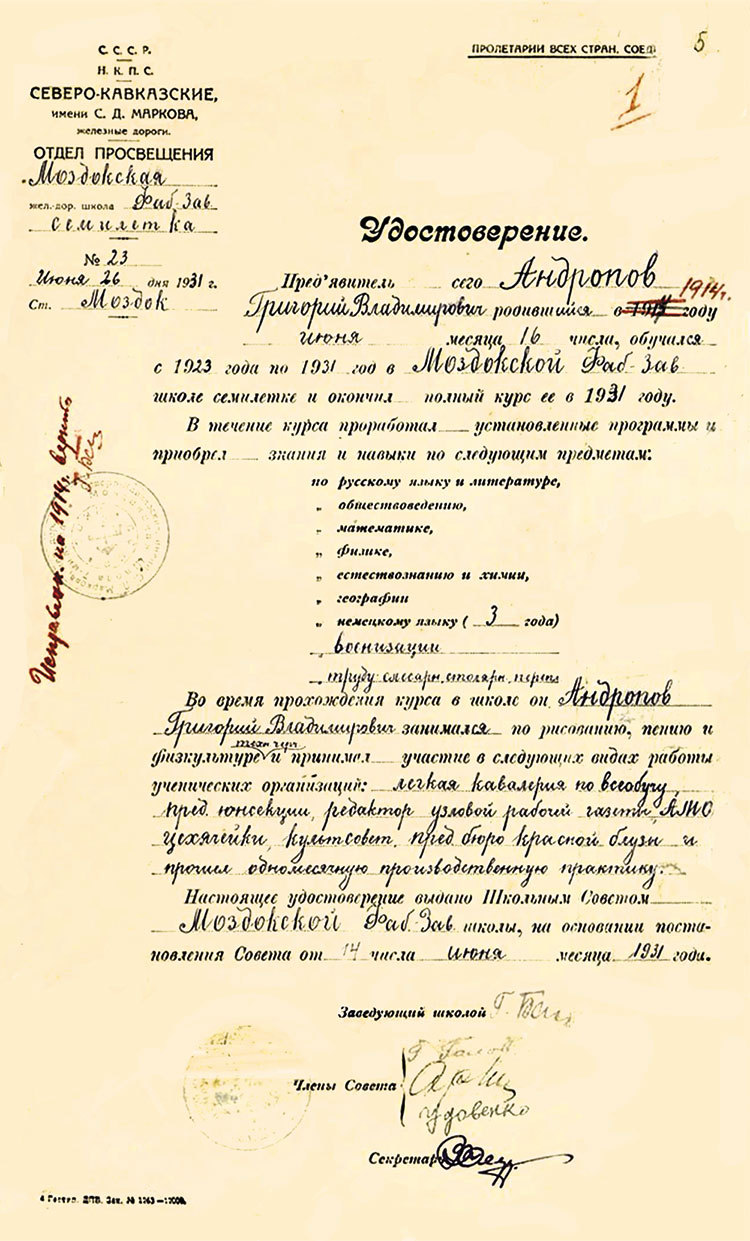 С. С. С. Р.
Н. К. П. С.
СЕВЕРО-КАВКАЗСКИЕ,
имени С. Д. МАРКОВА,
железные дороги.
ОТДЕЛ ПРОСВЕЩЕНИЯ
Моздокская
жел.-дор. школа Фаб-Зав
семилетка
№ 23
Июня 26 дня 1931 г.
Ст. Моздок
ПРОЛЕТАРИИ ВСЕХ СТРАН, СОЕД
5
1
Удостоверение.
Пред'явитель сего Андропов
Григорий Владимирович родившийся в 1914г. году
июня месяца 16 числа, обучался
с 1923 года по 1931 год в Моздокской Фаб-Зав
школе семилетке и окончил полный курс ее в 1931 году.
В течение курса проработал установленные программы и
приобрел знания и навыки по следующим предметам:
по русскому языку и литературе,
„ обществоведению,
„ математике,
„ физике,
„ естествознанию и химии,
„ географии
„ немецкому языку ( 3 года)
„ военизации
„ труду слесарн. столярн. переп
Во время прохождения курса в школе он Андропов
Григорий Владимирович занимался по рисованию, пению и
физкультуре и принимал участие в следующих видах работы
ученических организаций: легкая кавалерия по всеобучу,
пред. юнсекции, редактор узловой рабочей газеты, АМО
цехячейки, культсовет, пред. бюро красной блузы и
прошел одномесячную производственную практику.
Настоящее удостоверение выдано Школьным Советом
Моздокской Фаб-Зав школы, на основании поста-
новления Совета от 14 числа июня месяца 1931 года.
Исправлен. на 1914 верить
Заведующий школой
Члены Совета
Удовенко
Секретарь